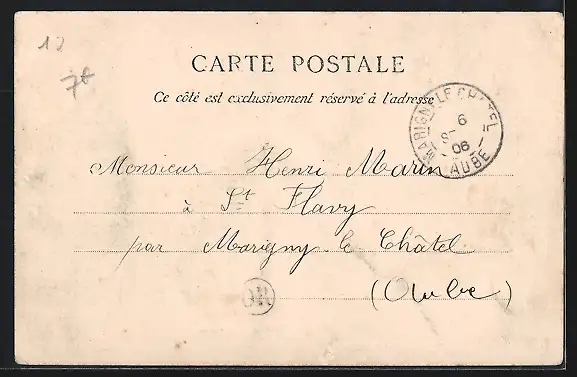 12
7f
CARTE POSTALE
Ce côté est exclusivement réservé à l'adresse
MARIGNY-LE-CHATEL
6
06
AUBE
Monsieur Henri Marin
à St Flavy
par Marigny le Châtel
(Aube)
OR